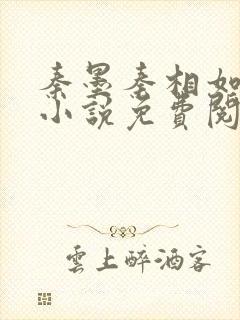 秦墨秦相如
小說免費閱
雲上醉酒客